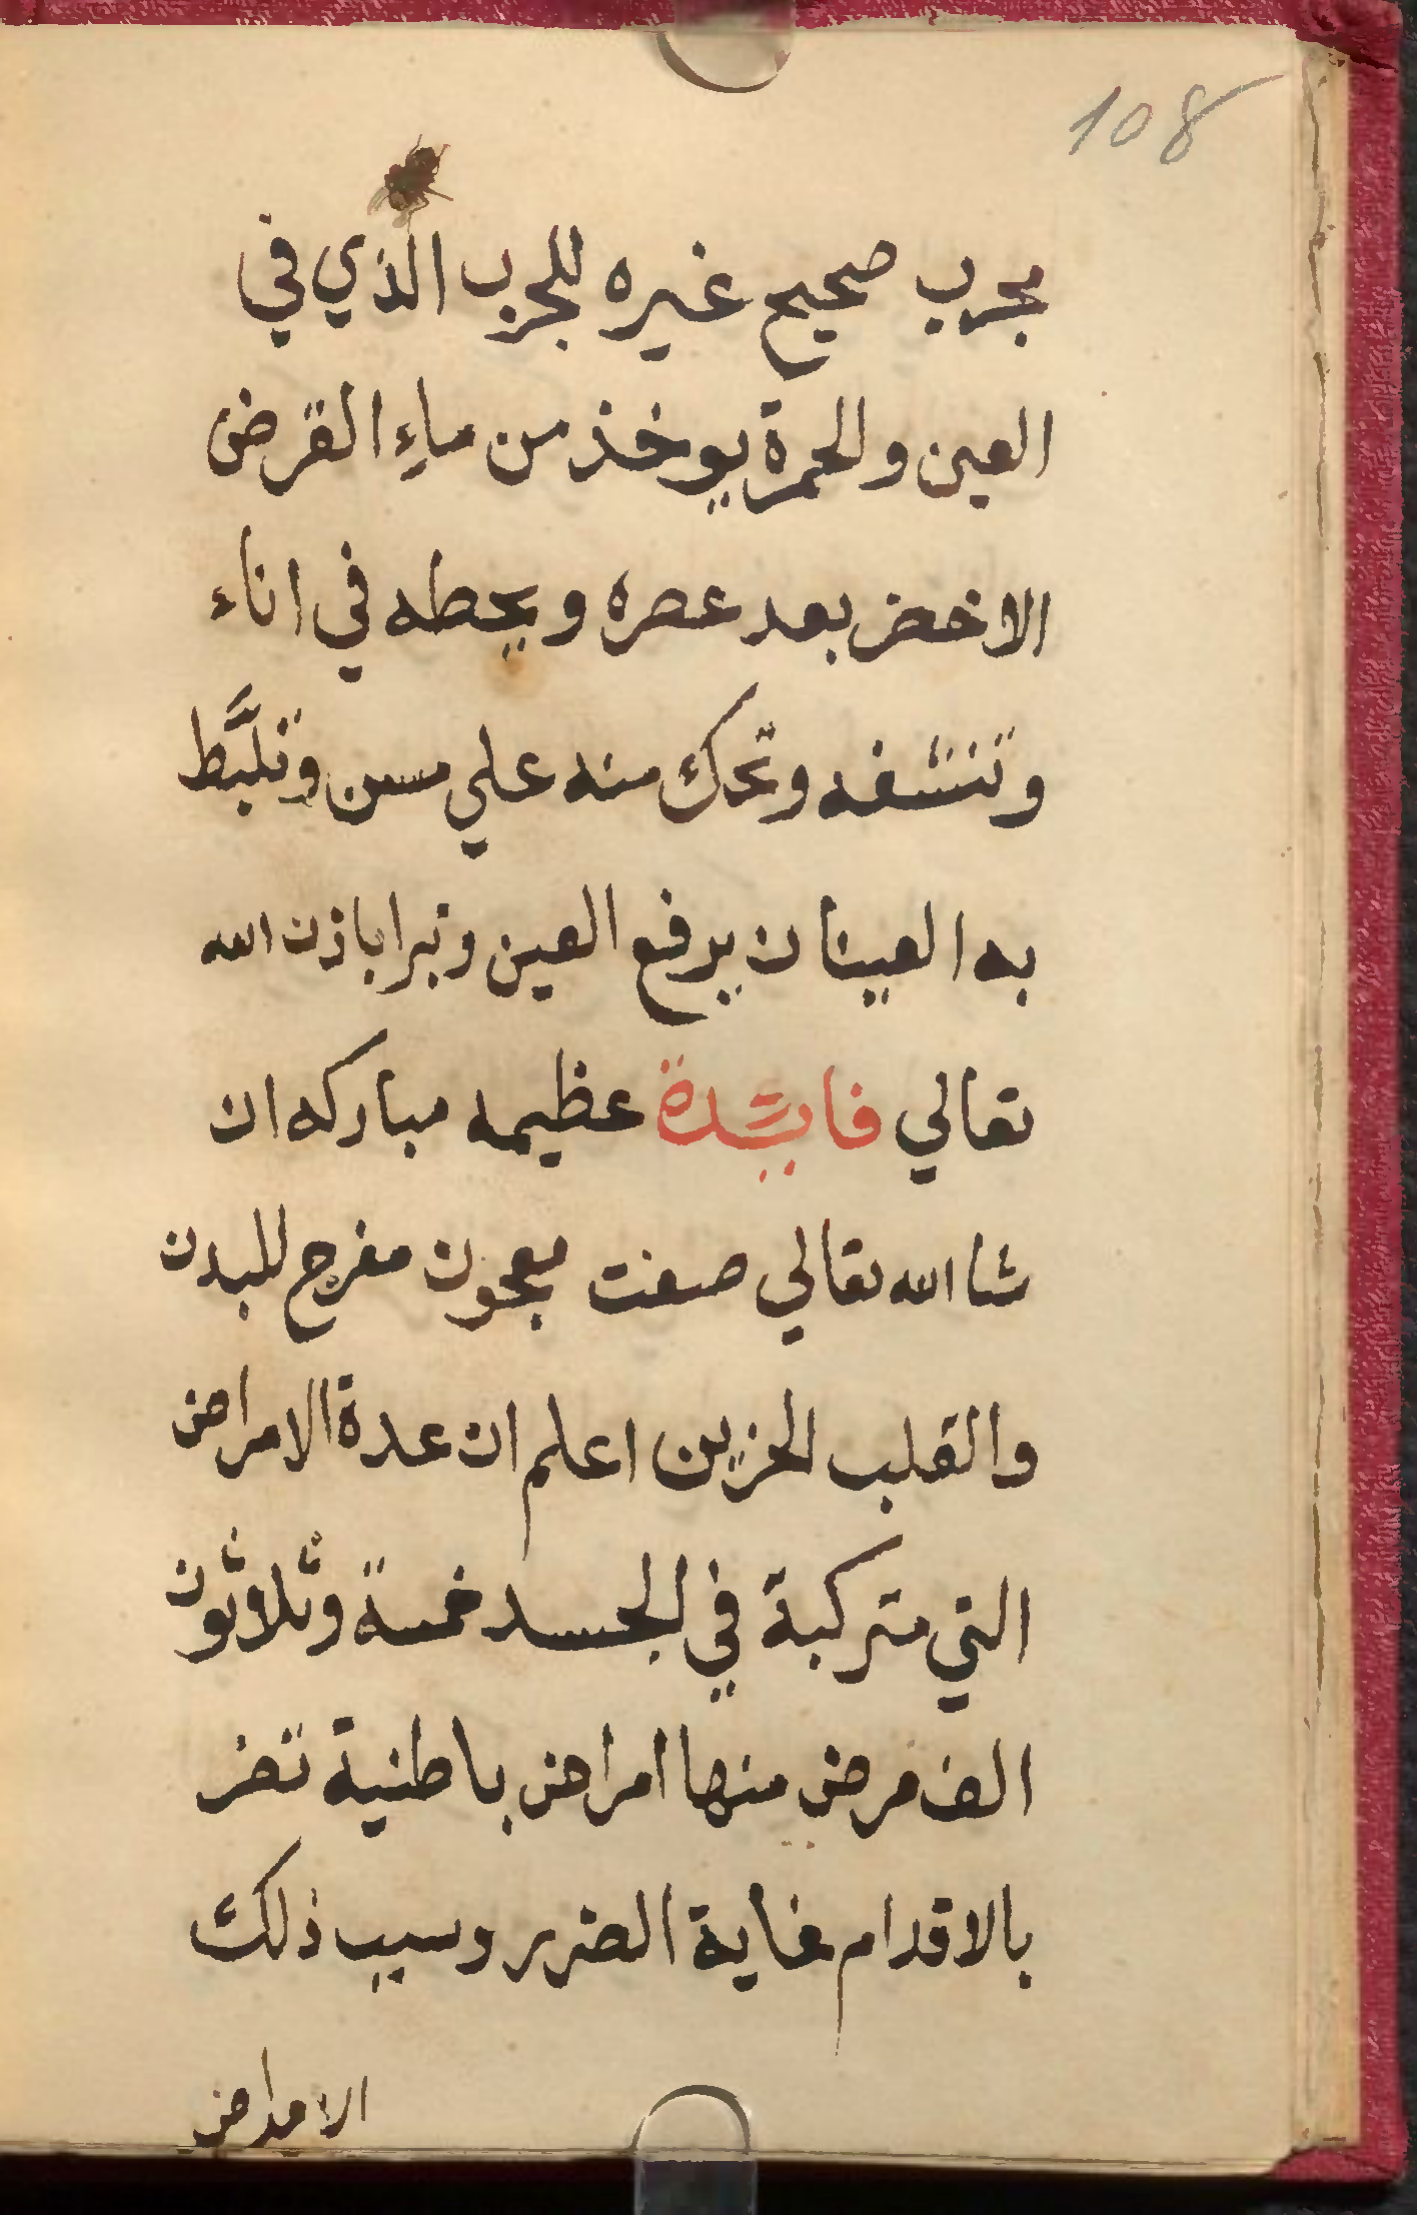 108
مجرب صحيح غيره للجرب الذي في
العين والحمرة يوخذ من ماءِ القرض
الاخضر بعد عصره ويحطه في اناء
وتنشفه وتحك منه علي مسن وتلبَّط
به العينان يرفع العين وتبرا باذن الله
تعالي فايدة عظيمه مباركه ان
شا الله تعالي صفت معجون مفرح للبدن
والقلب الحزين اعلم ان عدة الامراض
التي متركبة في الجسد خمسة وثلاثون
الف مرض منها امراض باطنية تضر
بالاقدام غاية الضرر وسبب ذلك
الامراض